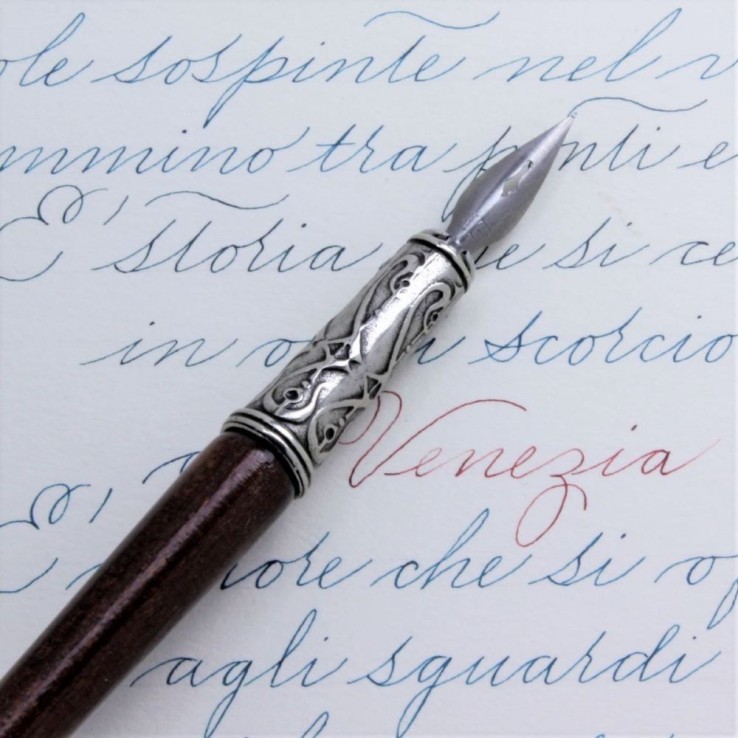 ole sospinte nel v
mmino tra ponti e
E' storia che si ce
in o scorcio
Venezia
E'
ore che si o
agli sguardi